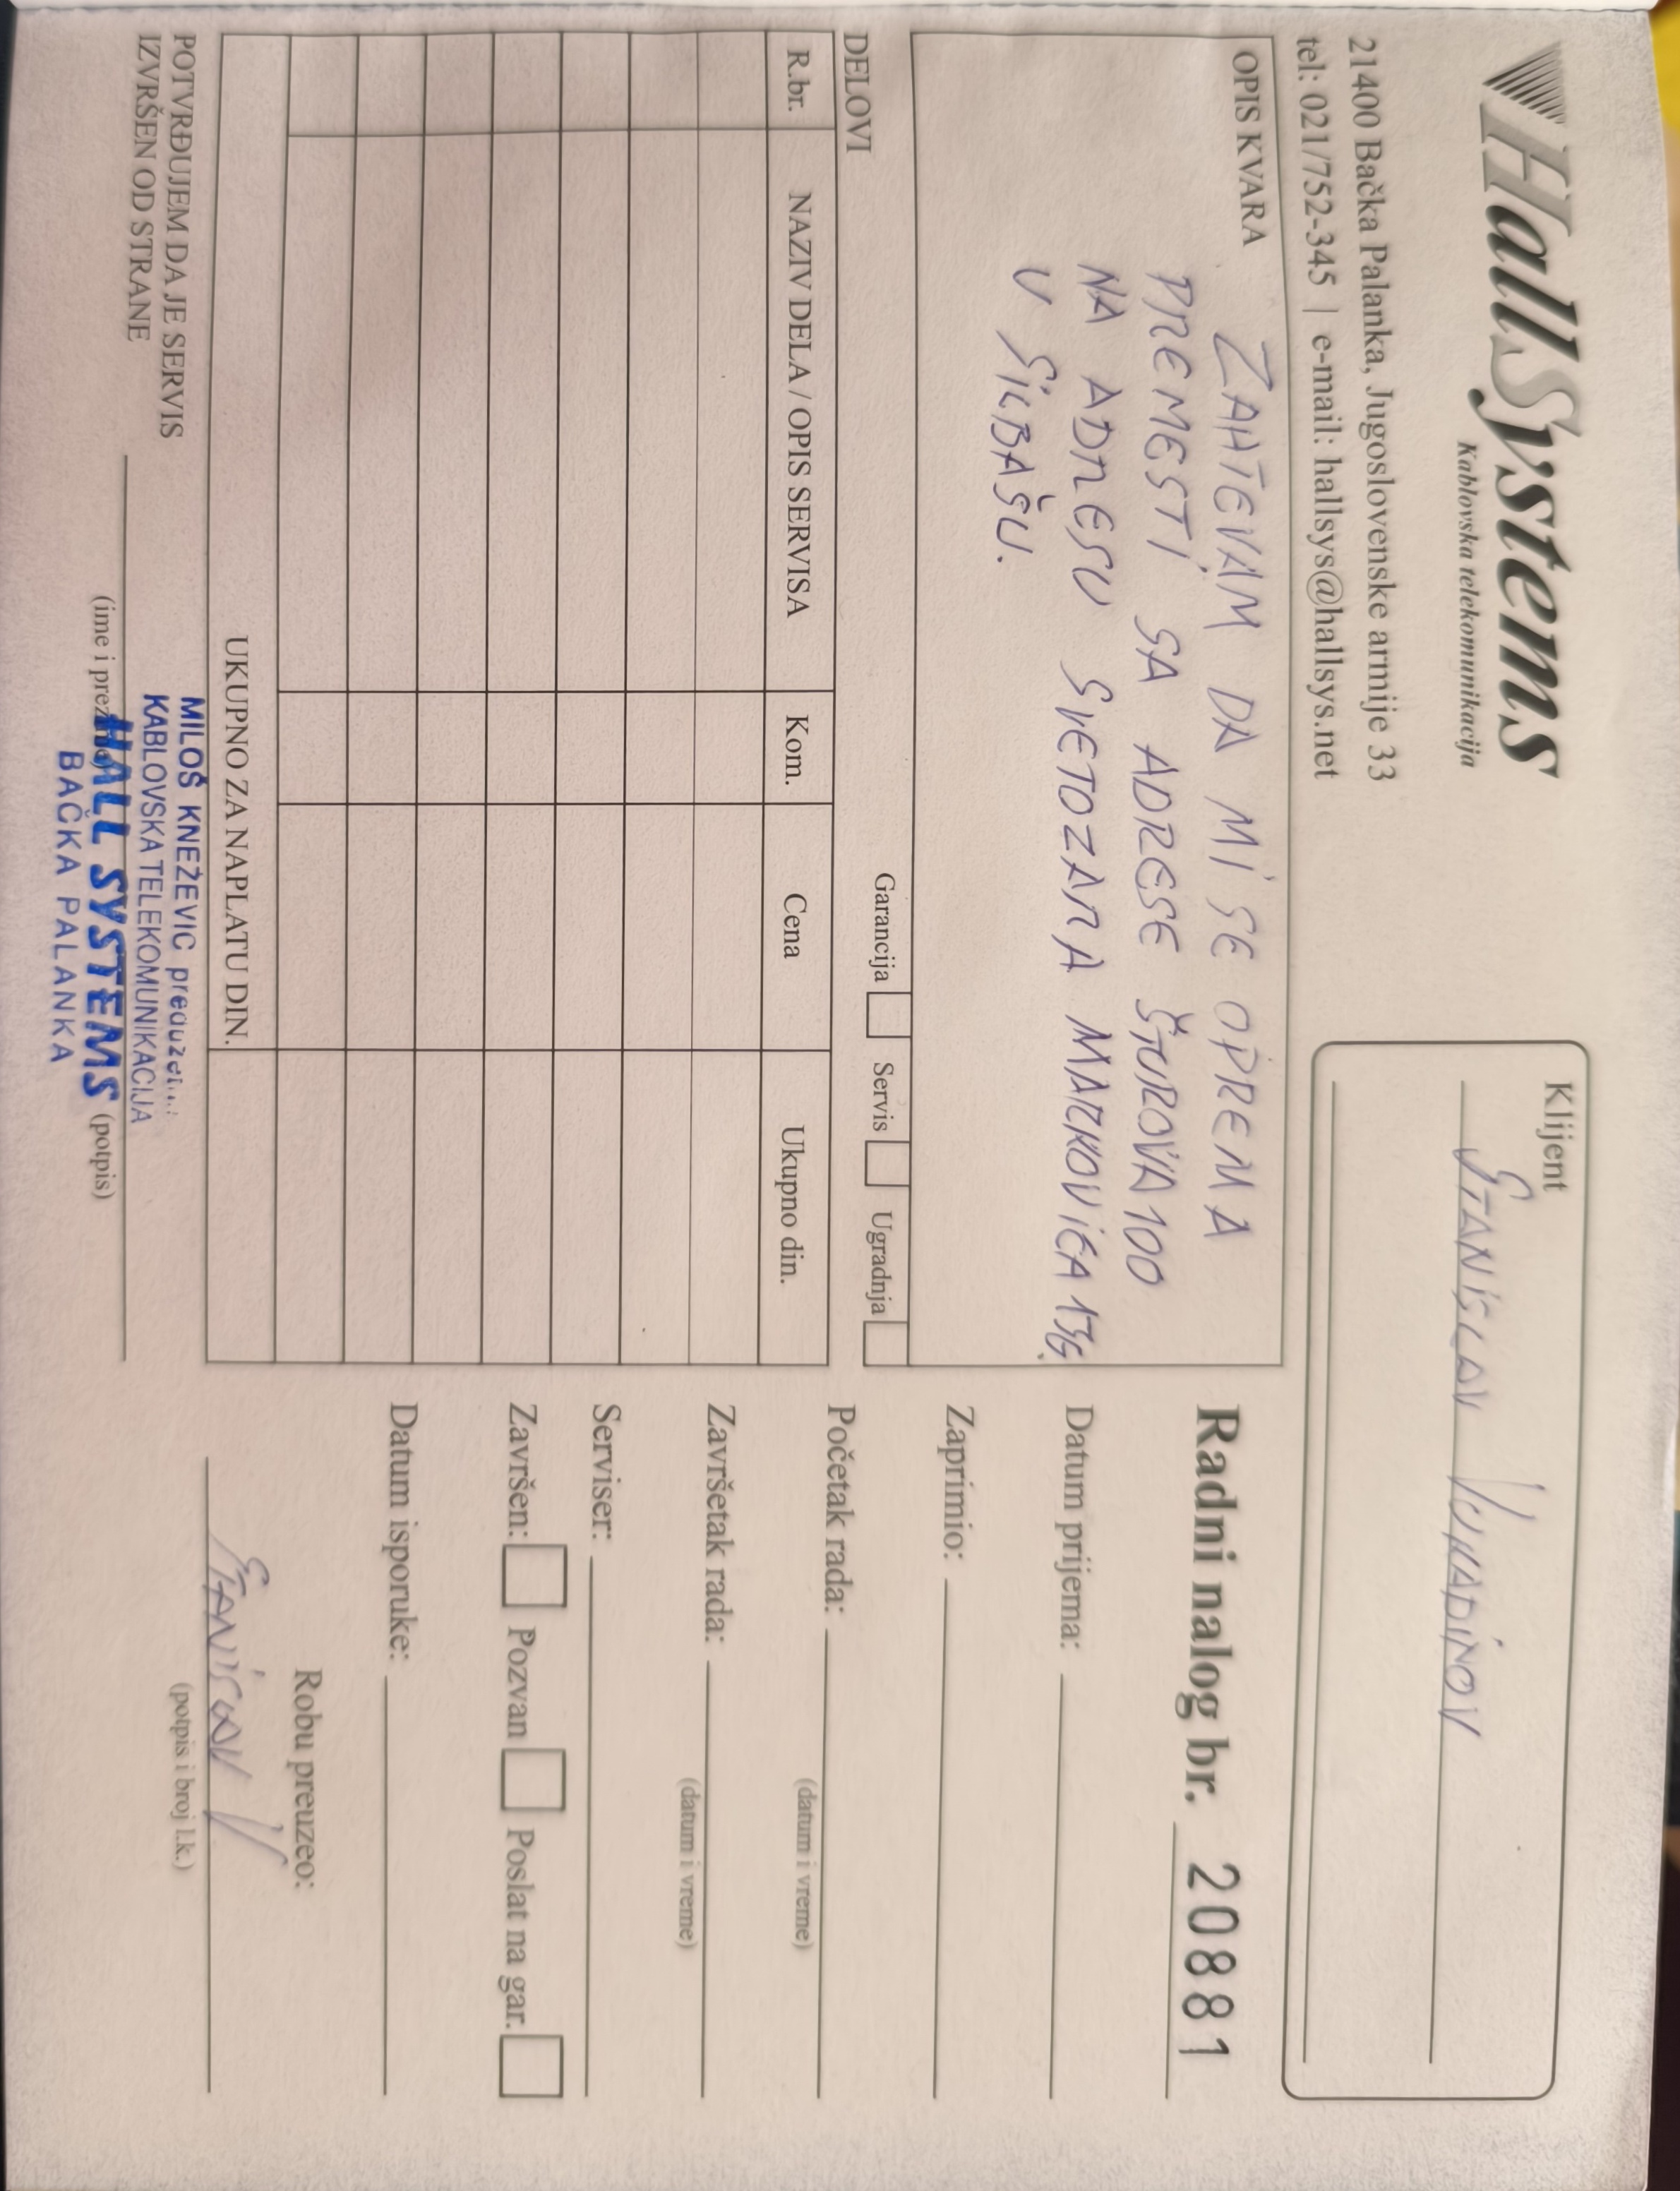 HallSystems
Kablovska telekomunikacija
21400 Bačka Palanka, Jugoslovenske armije 33
tel: 021/752-345 | e-mail: hallsys@hallsys.net
Klijent
STANISLAV VUKADINOV
OPIS KVARA
ZAHTEVAM DA MI SE OPREMA
PREMESTI SA ADRESE ŠTUROVA 100
NA ADRESU SVETOZARA MARKOVIĆA 136
U SILBAŠU.
Garancija Servis Ugradnja
DELOVI
R.br. NAZIV DELA / OPIS SERVISA Kom. Cena Ukupno din.
UKUPNO ZA NAPLATU DIN.
POTVRĐUJEM DA JE SERVIS
IZVRŠEN OD STRANE
(ime i prezime) (potpis)
MILOŠ KNEŽEVIC
KABLOVSKA TELEKOMUNIKACIJA
HALL SYSTEMS
BAČKA PALANKA
Radni nalog br. 20881
Datum prijema:
Zaprimio:
Početak rada:
(datum i vreme)
Završetak rada:
(datum i vreme)
Serviser:
Završen: Pozvan Poslat na gar.
Datum isporuke:
Robu preuzeo:
STANISLAV V
(potpis i broj l.k.)